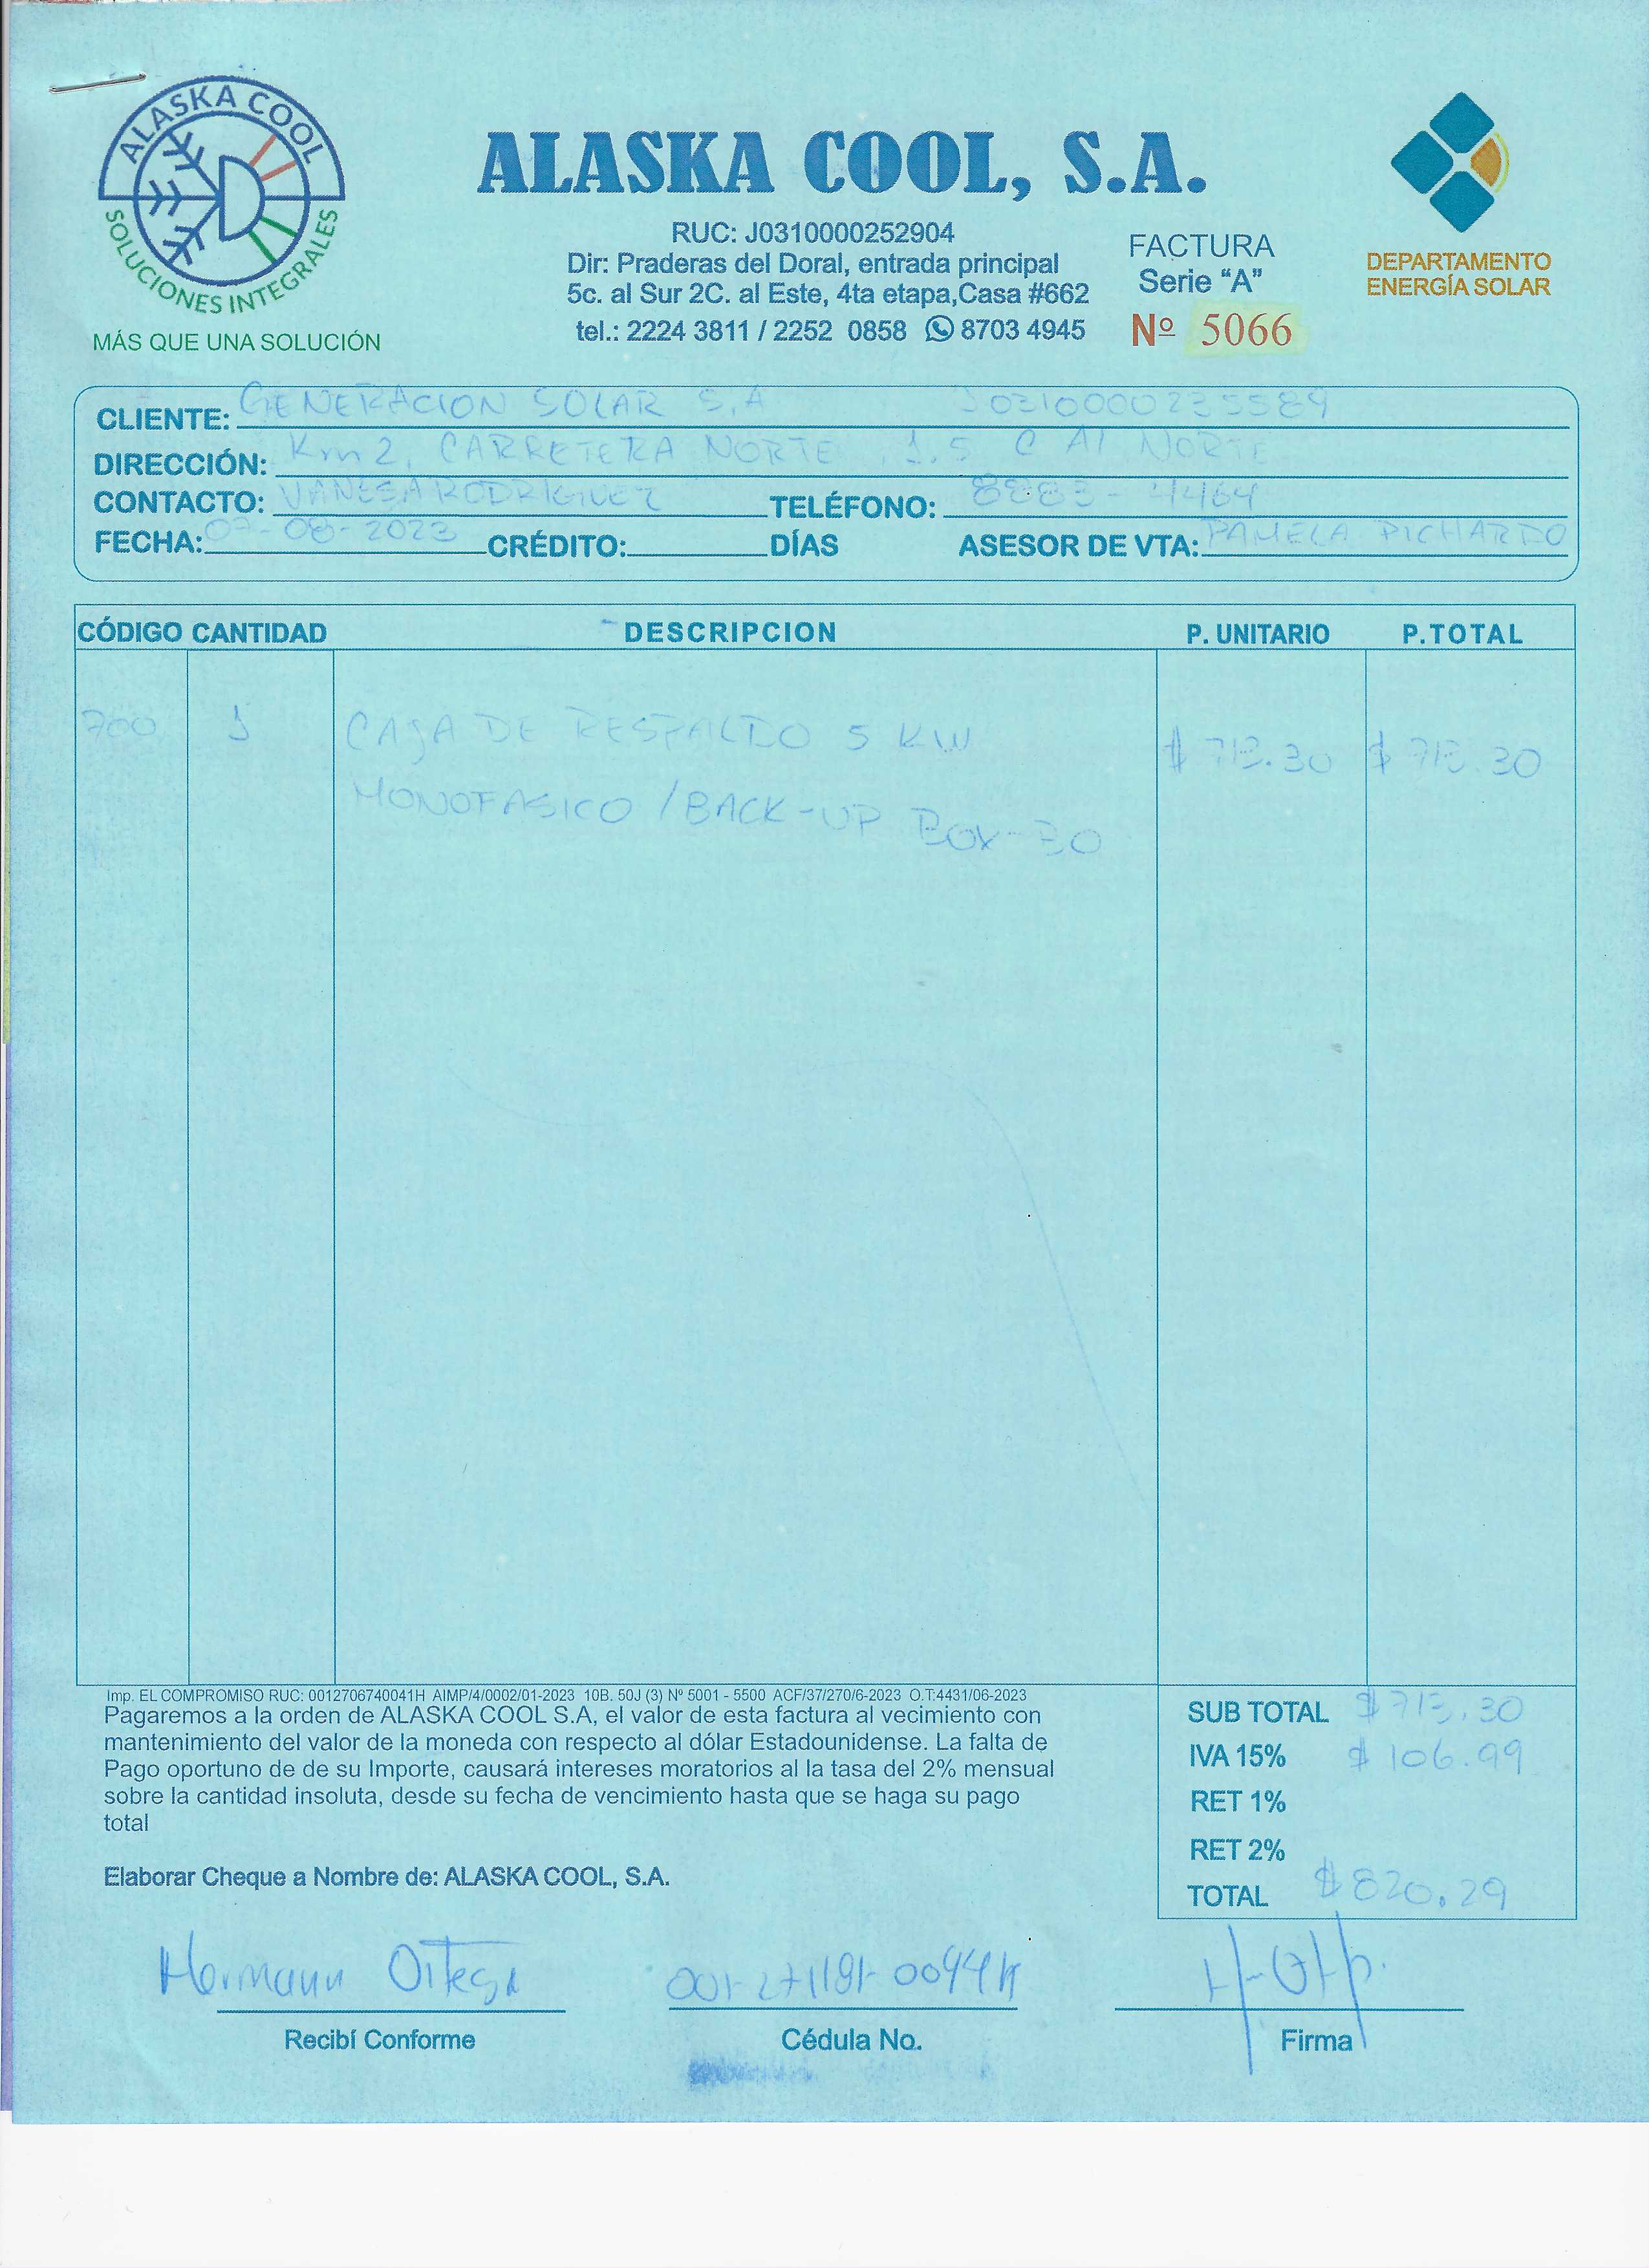 ALASKA COOL
SOLUCIONES INTEGRALES
MÁS QUE UNA SOLUCIÓN
ALASKA COOL, S.A.
RUC: J0310000252904
Dir: Praderas del Doral, entrada principal
5c. al Sur 2C. al Este, 4ta etapa,Casa #662
tel.: 2224 3811 / 2252 0858 8703 4945
FACTURA
Serie “A”
Nº 5066
DEPARTAMENTO
ENERGÍA SOLAR
CLIENTE: GENERACION SOLAR S.A J0310000235589
DIRECCIÓN: Km 2, CARRETERA NORTE, 1.5 C Al NORTE
CONTACTO: VANESA RODRIGUEZ TELÉFONO: 8883-4464
FECHA: 07-08-2023 CRÉDITO: DÍAS ASESOR DE VTA: PAMELA PICHARDO
CÓDIGO CANTIDAD DESCRIPCION P. UNITARIO P.TOTAL
700 1 CAJA DE RESPALDO 5 KW $ 713.30 $ 713.30
MONOFASICO / BACK-UP BOX-
Imp. EL COMPROMISO RUC: 0012706740041H AIMP/4/0002/01-2023 10B. 50J (3) Nº 5001 - 5500 ACF/37/270/6-2023 O.T:4431/06-2023
Pagaremos a la orden de ALASKA COOL S.A, el valor de esta factura al vecimiento con
mantenimiento del valor de la moneda con respecto al dólar Estadounidense. La falta de
Pago oportuno de de su Importe, causará intereses moratorios al la tasa del 2% mensual
sobre la cantidad insoluta, desde su fecha de vencimiento hasta que se haga su pago
total
Elaborar Cheque a Nombre de: ALASKA COOL, S.A.
SUB TOTAL $ 713.30
IVA 15% $ 106.99
RET 1%
RET 2%
TOTAL $ 820.29
Hermann Ortega
Recibí Conforme
Cédula No.
Firma